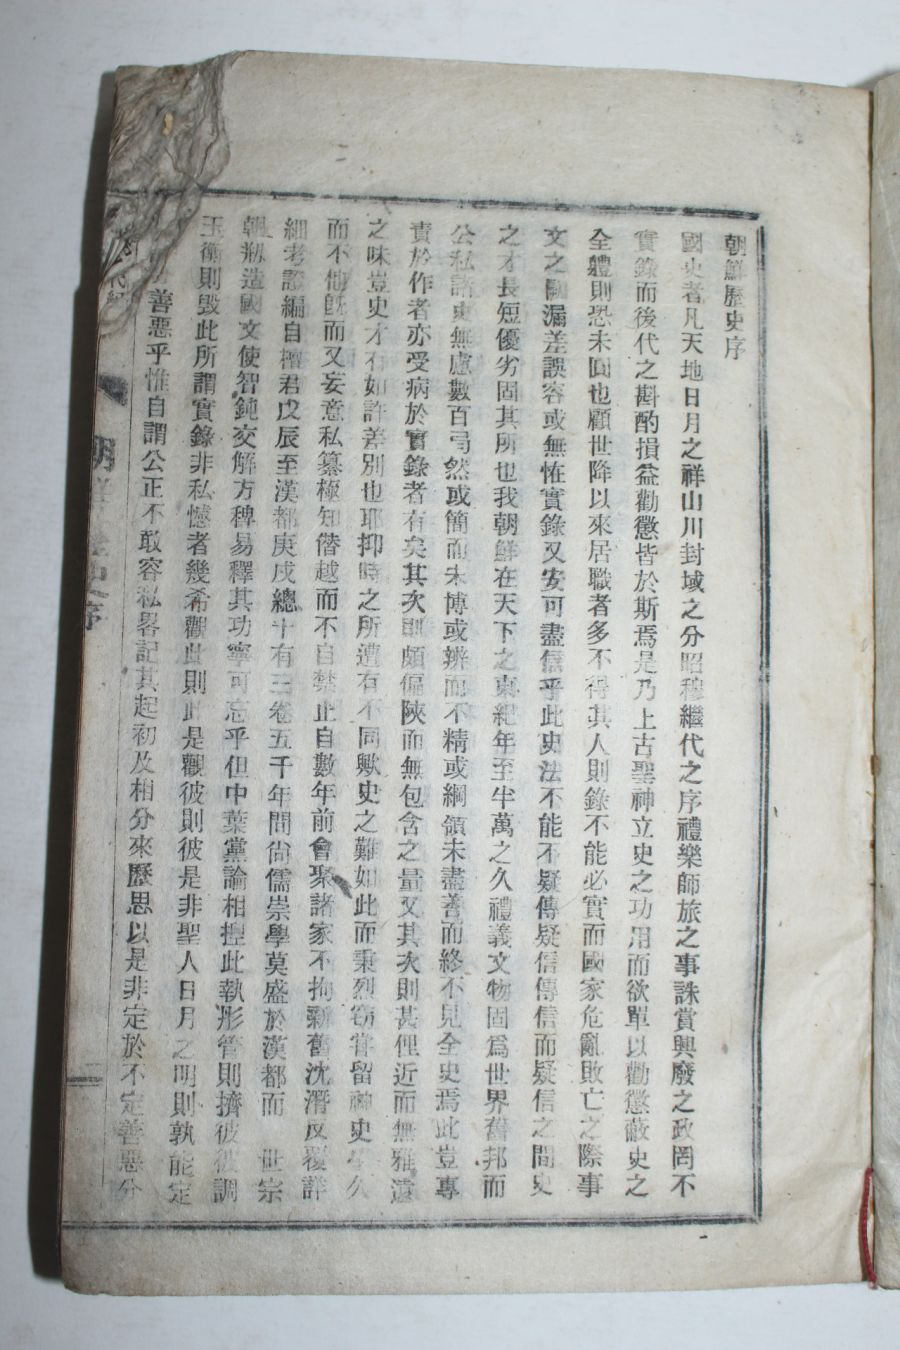 朝鮮歷史序
國史者凡天地日月之祥山川封域之分昭穆繼代之序禮樂師旅之事誅賞興廢之政罔不
實錄而後代之斟酌損益勸懲皆於斯焉是乃上古聖神立史之功用而欲單以勸懲蔽史之
全軆則恐未圓也顧世降以來居職者多不得其人則錄不能必實而國家危亂敗亡之際事
文之闕漏差誤容或無怪實錄又安可盡信乎此史法不能不疑傳疑信傳信而疑信之間史
之才長短優劣固其所也我朝鮮在天下之東紀年至半萬之久禮義文物固爲世界舊邦而
公私諸史無慮數百弓然或簡而未博或辨而不精或綱領未盡善而終不見全史焉此豈專
責於作者亦受病於實錄者有矣其次則頗偏陜而無包含之量又其次則甚俚近而無雅遠
之味豈史才有如許差別也耶抑時之所遭有不同歟史之難如此而秉烈窃甞留神史學久
而不他旣而又妄意私纂極知僭越而不自禁止自數年前會聚諸家不拘新舊沈潛反覆詳
細考證編自檀君戊辰至漢都庚戌總十有三卷五千年間尙儒崇學莫盛於漢都而 世宗
朝刱造國文使智鈍交解方稗易釋其功寧可忘乎但中葉黨論相捏此執彤管則擠彼彼調
玉衡則毁此所謂實錄非私憾者幾希觀此則此是觀彼則彼是非聖人日月之明則孰能定
善惡乎惟自謂公正不敢容私畧記其起初及相分來歷思以是非定於不定善惡分
朝鮮歷史序